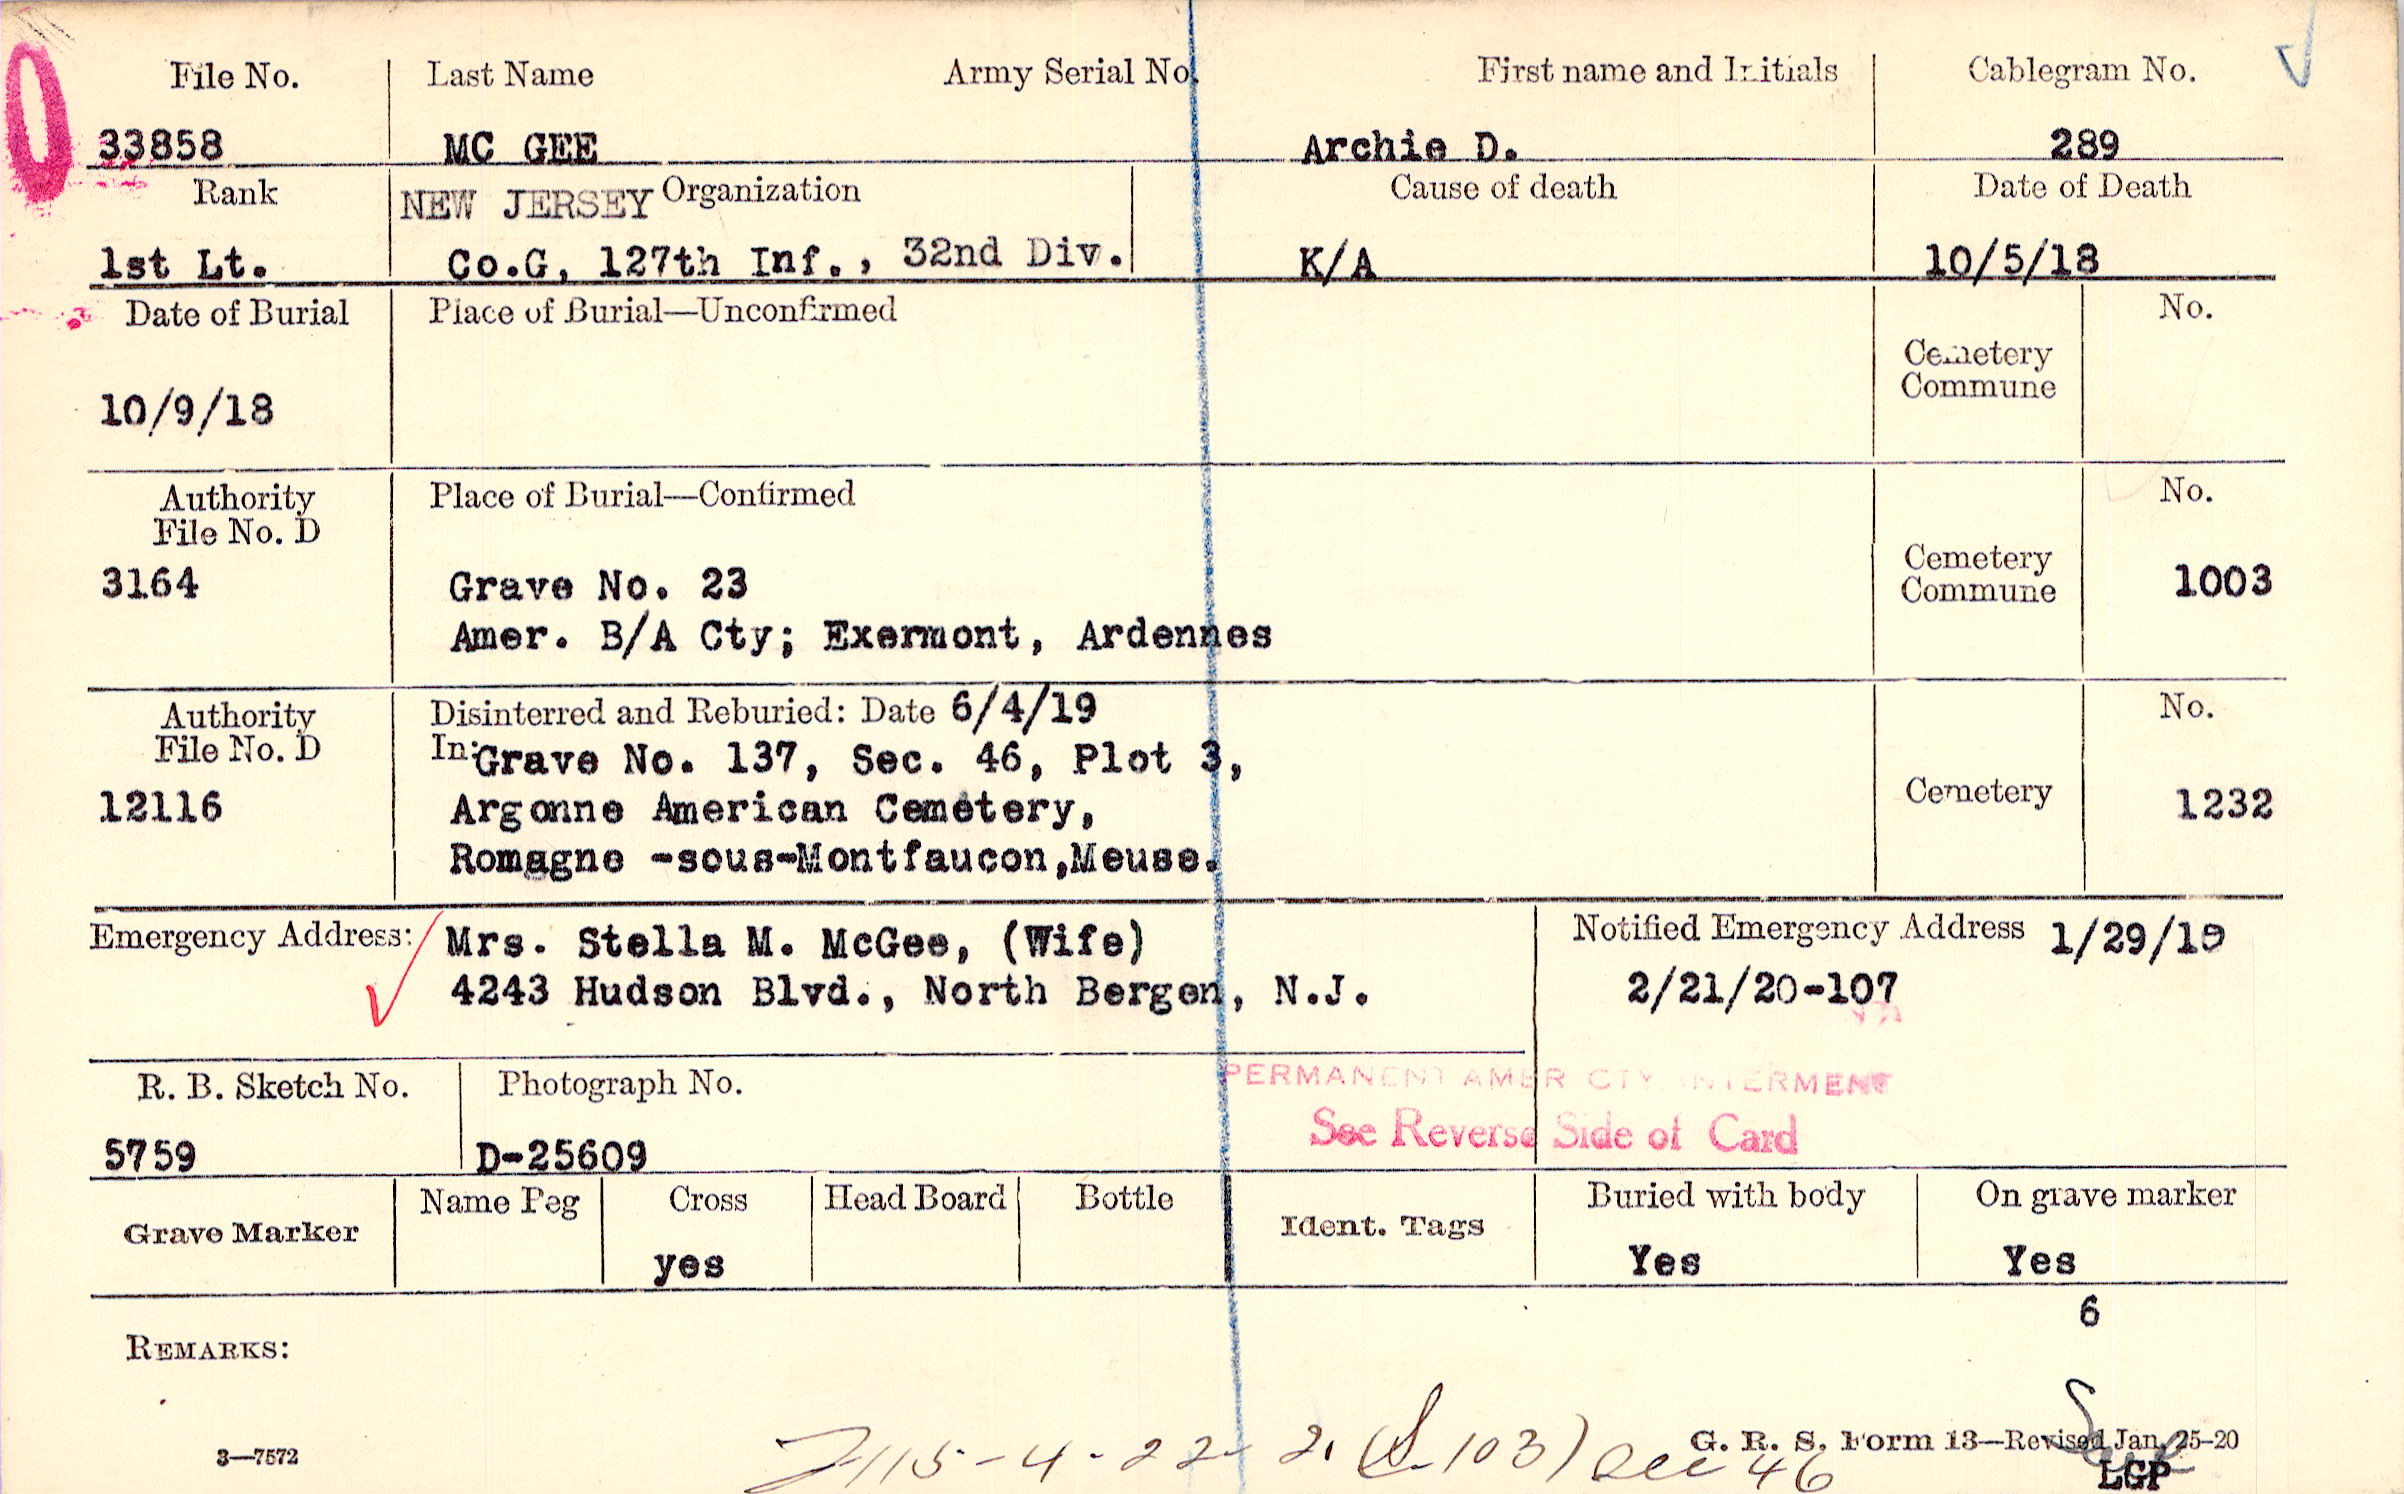 File No. Last Name Army Serial No. First name and Initials Cablegram No.
33858 MC GEE Archie D. 289
Rank NEW JERSEY Organization Cause of death Date of Death
1st Lt. Co.G, 127th Inf., 32nd Div. K/A 10/5/18
Date of Burial Place of Burial—Unconfirmed No.
Cemetery
Commune
10/9/18
Authority Place of Burial—Confirmed No.
File No. D
Cemetery
3164 Grave No. 23 Commune 1003
Amer. B/A Cty; Exermont, Ardennes
Authority Disinterred and Reburied: Date 6/4/19 No.
File No. D In: Grave No. 137, Sec. 46, Plot 3,
12116 Argonne American Cemetery, Cemetery 1232
Romagne -sous-Montfaucon,Meuse.
Emergency Address: Mrs. Stella M. McGee, (Wife) Notified Emergency Address 1/29/19
4243 Hudson Blvd., North Bergen, N.J. 2/21/20-107
R. B. Sketch No. Photograph No. PERMANENT AMER CTY INTERMENT
See Reverse Side of Card
5759 D-25609
Grave Marker Name Peg Cross Head Board Bottle Ident. Tags Buried with body On grave marker
yes Yes Yes
6
REMARKS:
3—7572 115-4-22-2. (S-103) Sec 46 G. R. S. Form 13—Revised Jan. 25-20
LGP